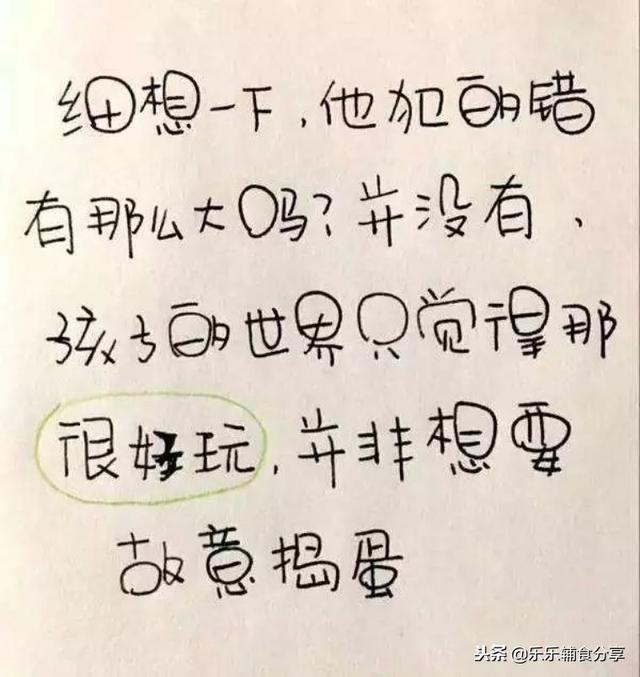 细想一下，他犯的错
有那么大吗？并没有、
孩子的世界只觉得那
很好玩，并非想要
故意捣蛋
头条 @乐乐辅食分享